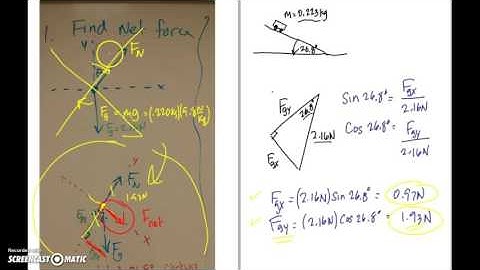 1. Find Net force
y
F_N
F_g = mg = (.220kg)(9.8 m/kg)
F_N
1.93N
F_net
x
F_g
m=0.223kg
26.8°
F_gy
26.8°
2.16N
F_gx
Sin 26.8° = F_gx / 2.16N
Cos 26.8° = F_gy / 2.16N
F_gx = (2.16N) Sin 26.8° = 0.97N
F_gy = (2.16N) Cos 26.8° = 1.93N
RECORDED WITH
SCREENCAST-O-MATIC